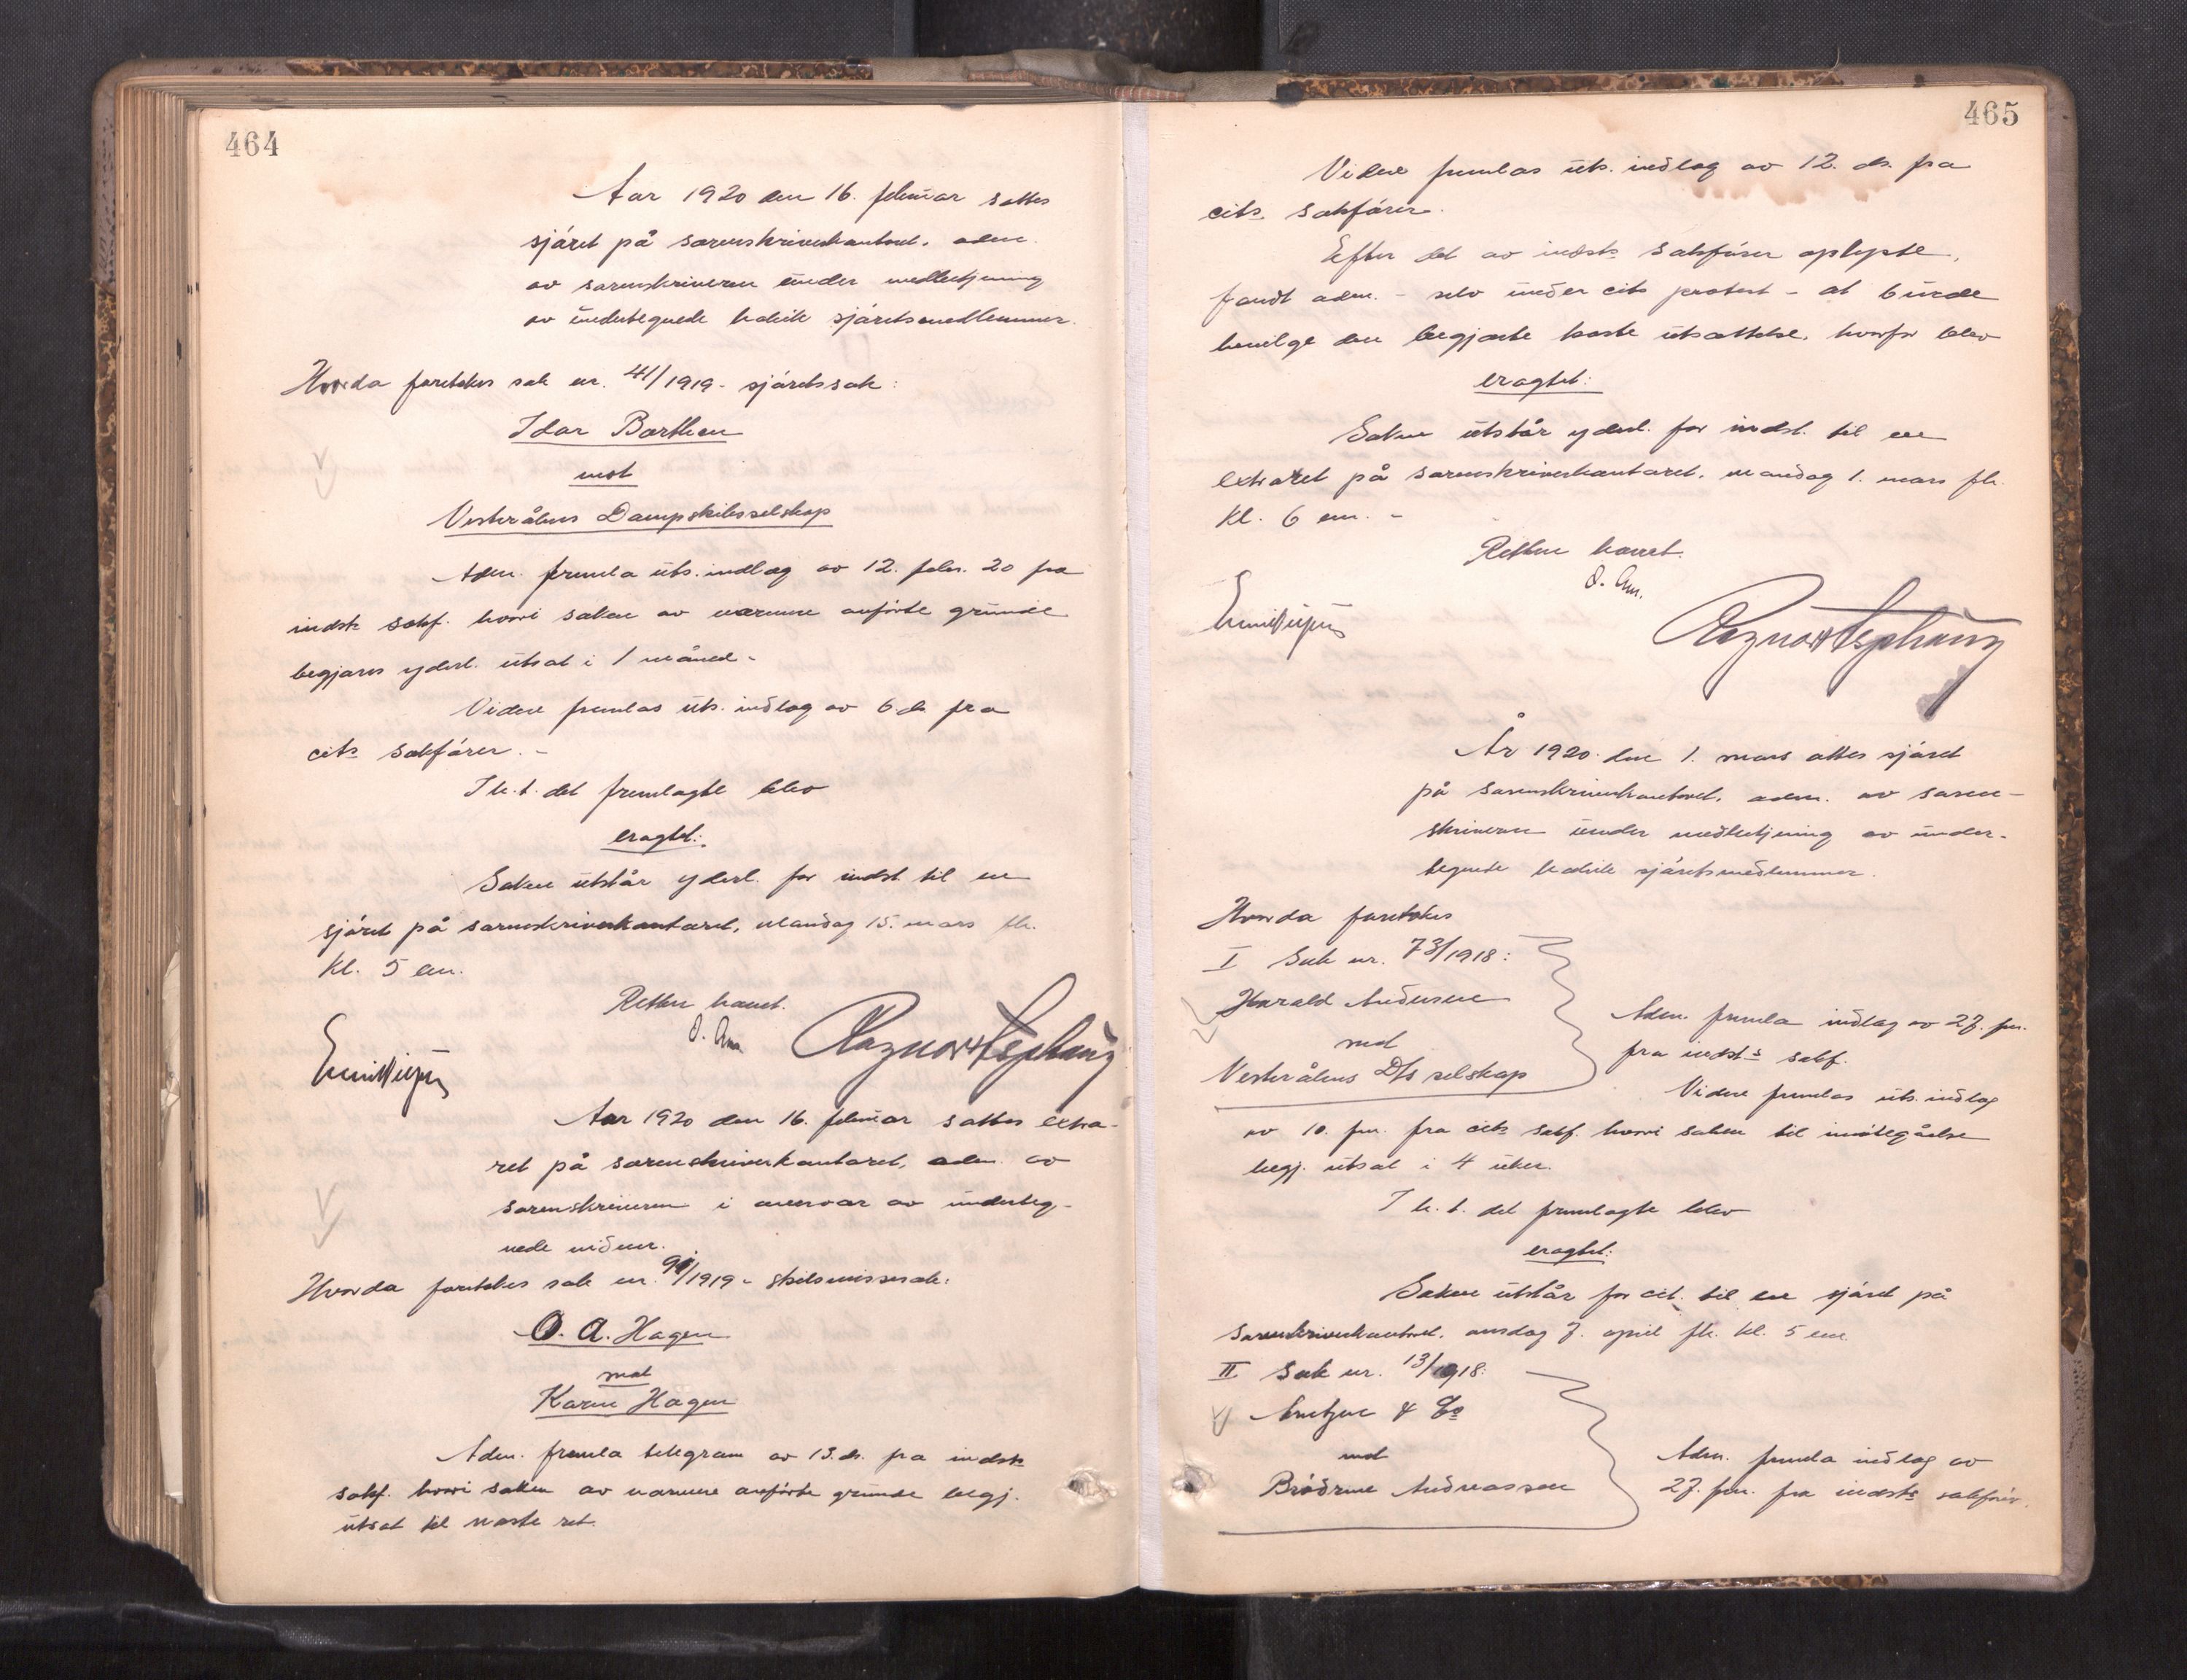 464
Aar 1920 den 16. februar sattes
sjøret på sorenskriverkontoret, adm.
av sorenskriveren under medbetjening
av undertegnede kaldte sjøretsmedlemmer.
Hvorda foretokes sak nr. 41/1919 - sjøretssak:
Idar Barthen
mot
Vesterålens Dampskibsselskap
Adm. fremla uts. indlæg av 12. febr. 20 fra
indst⁠s sakf. hvori saken av nærmere anførte grunde
begjæres yderl. utsat i 1 måned -
Videre fremlas uts. indlæg av 6. ds. fra
cits sakfører. -
I h.t. det fremlagte blev
eragtet:
Saken utstår yderl. for indst. til en
sjøret på sorenskriverkontoret, mandag 15. mars fk.
kl. 5 em.
Retten hævet.
O. Am
Aar 1920 den 16. februar sattes extra-
ret på sorenskriverkontoret, adm. av
sorenskriveren i overvær av underteg-
nede vidner.
Hvorda foretokes sak nr. 91/1919 - skilsmissesak:
O. A. Hagen
mot
Karen Hagen
Adm. fremla telegram av 13. ds. fra indsts
sakf. hvori saken av nærmere anførte grunde begj.
utsat til næste ret.
465
Videre fremlas uts. indlæg av 12. ds. fra
cits sakfører.
Efter det av indsts sakfører oplyste,
fandt adm. - selv under cits protest - at burde
bevilge den begjærte korte utsættelse, hvorfor blev
eragtet:
Saken utstår yderl. for indst. til en
extraret på sorenskriverkontoret, mandag 1. mars fk.
kl. 6 em. -
Retten hævet.
O. Am.
År 1920 den 1. mars sattes sjøret
på sorenskriverkontoret, adm. av soren-
skriveren under medbetjening av under-
tegnede kaldte sjøretsmedlemmer.
Hvorda foretokes
I Sak nr. 73/1918:
Harald Andersen
mot
Vesterålens D/s selskap
Adm. fremla indlæg av 27. f.m.
fra indsts sakf.
Videre fremlas uts. indlæg
av 10. f.m. fra cits sakf. hvori saken til imøtegåelse
begj. utsat i 4 uker.
I h.t. det fremlagte blev
eragtet:
Saken utstår for cit. til en sjøret på
sorenskriverkontoret, onsdag 7. april fk. kl. 5 em.
II Sak nr. 13/1918:
Arntzen & Co
mot
Brødrene Andreassen
Adm. fremla indlæg av
27. f.m. fra indsts sakfører.